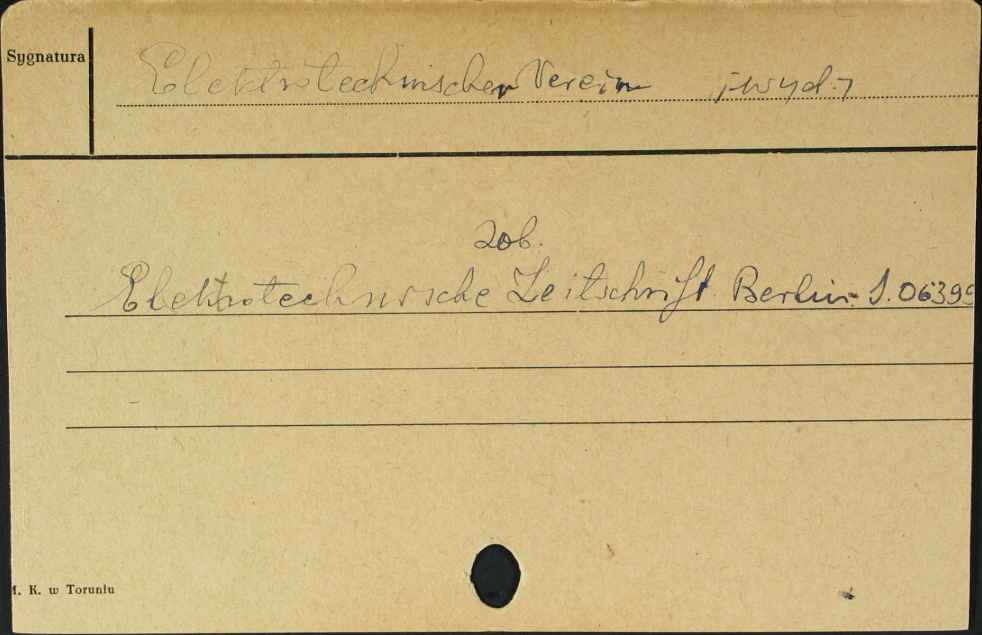 Sygnatura
Elektrotechnischer Verein [wyd.]
zob.
Elektrotechnische Zeitschrift. Berlin. S. 06399
K. w Toruniu